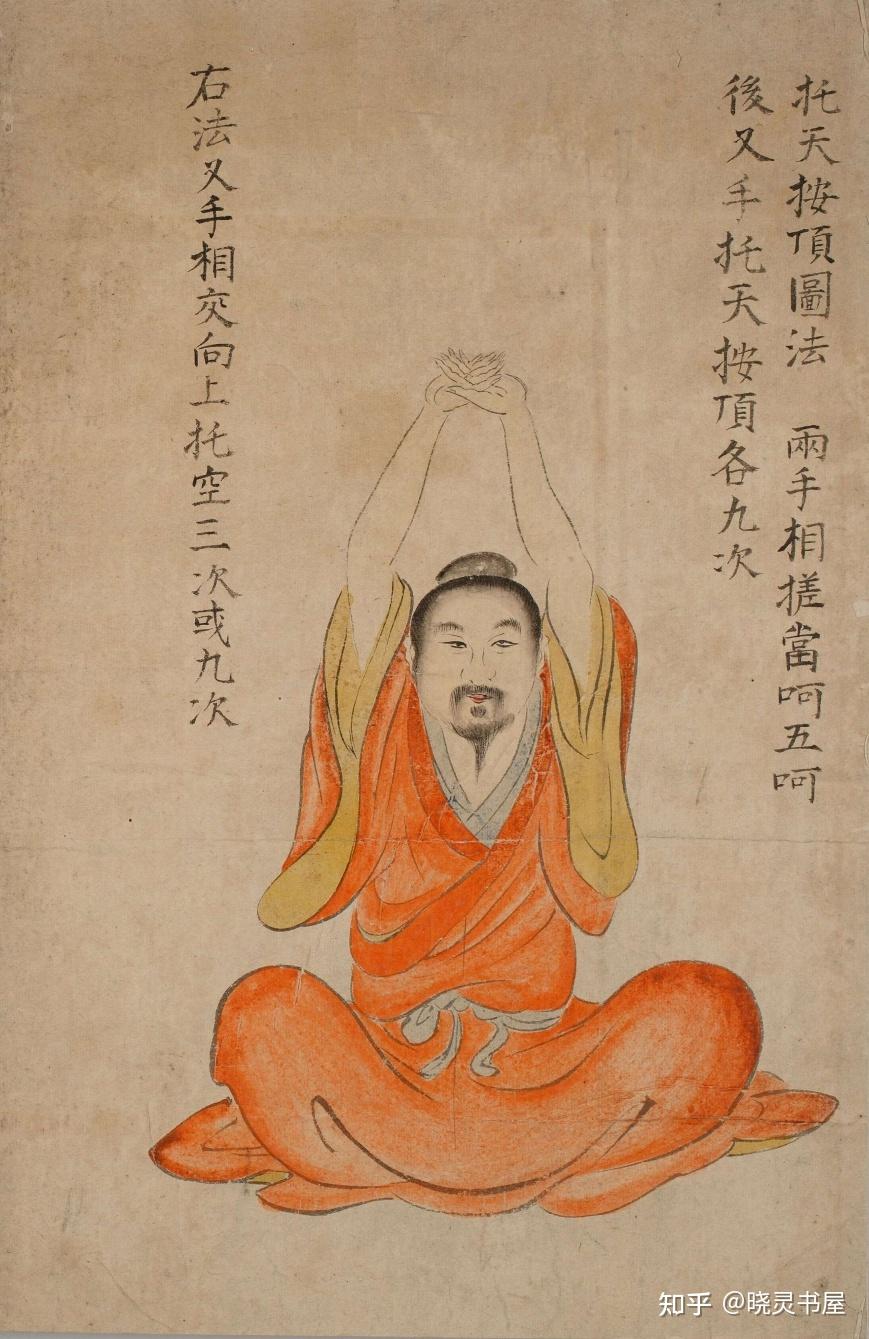 托天按頂圖法 兩手相搓當呵五呵
後又手托天按頂各九次
右法又手相交向上托空三次或九次
知乎 @晓灵书屋